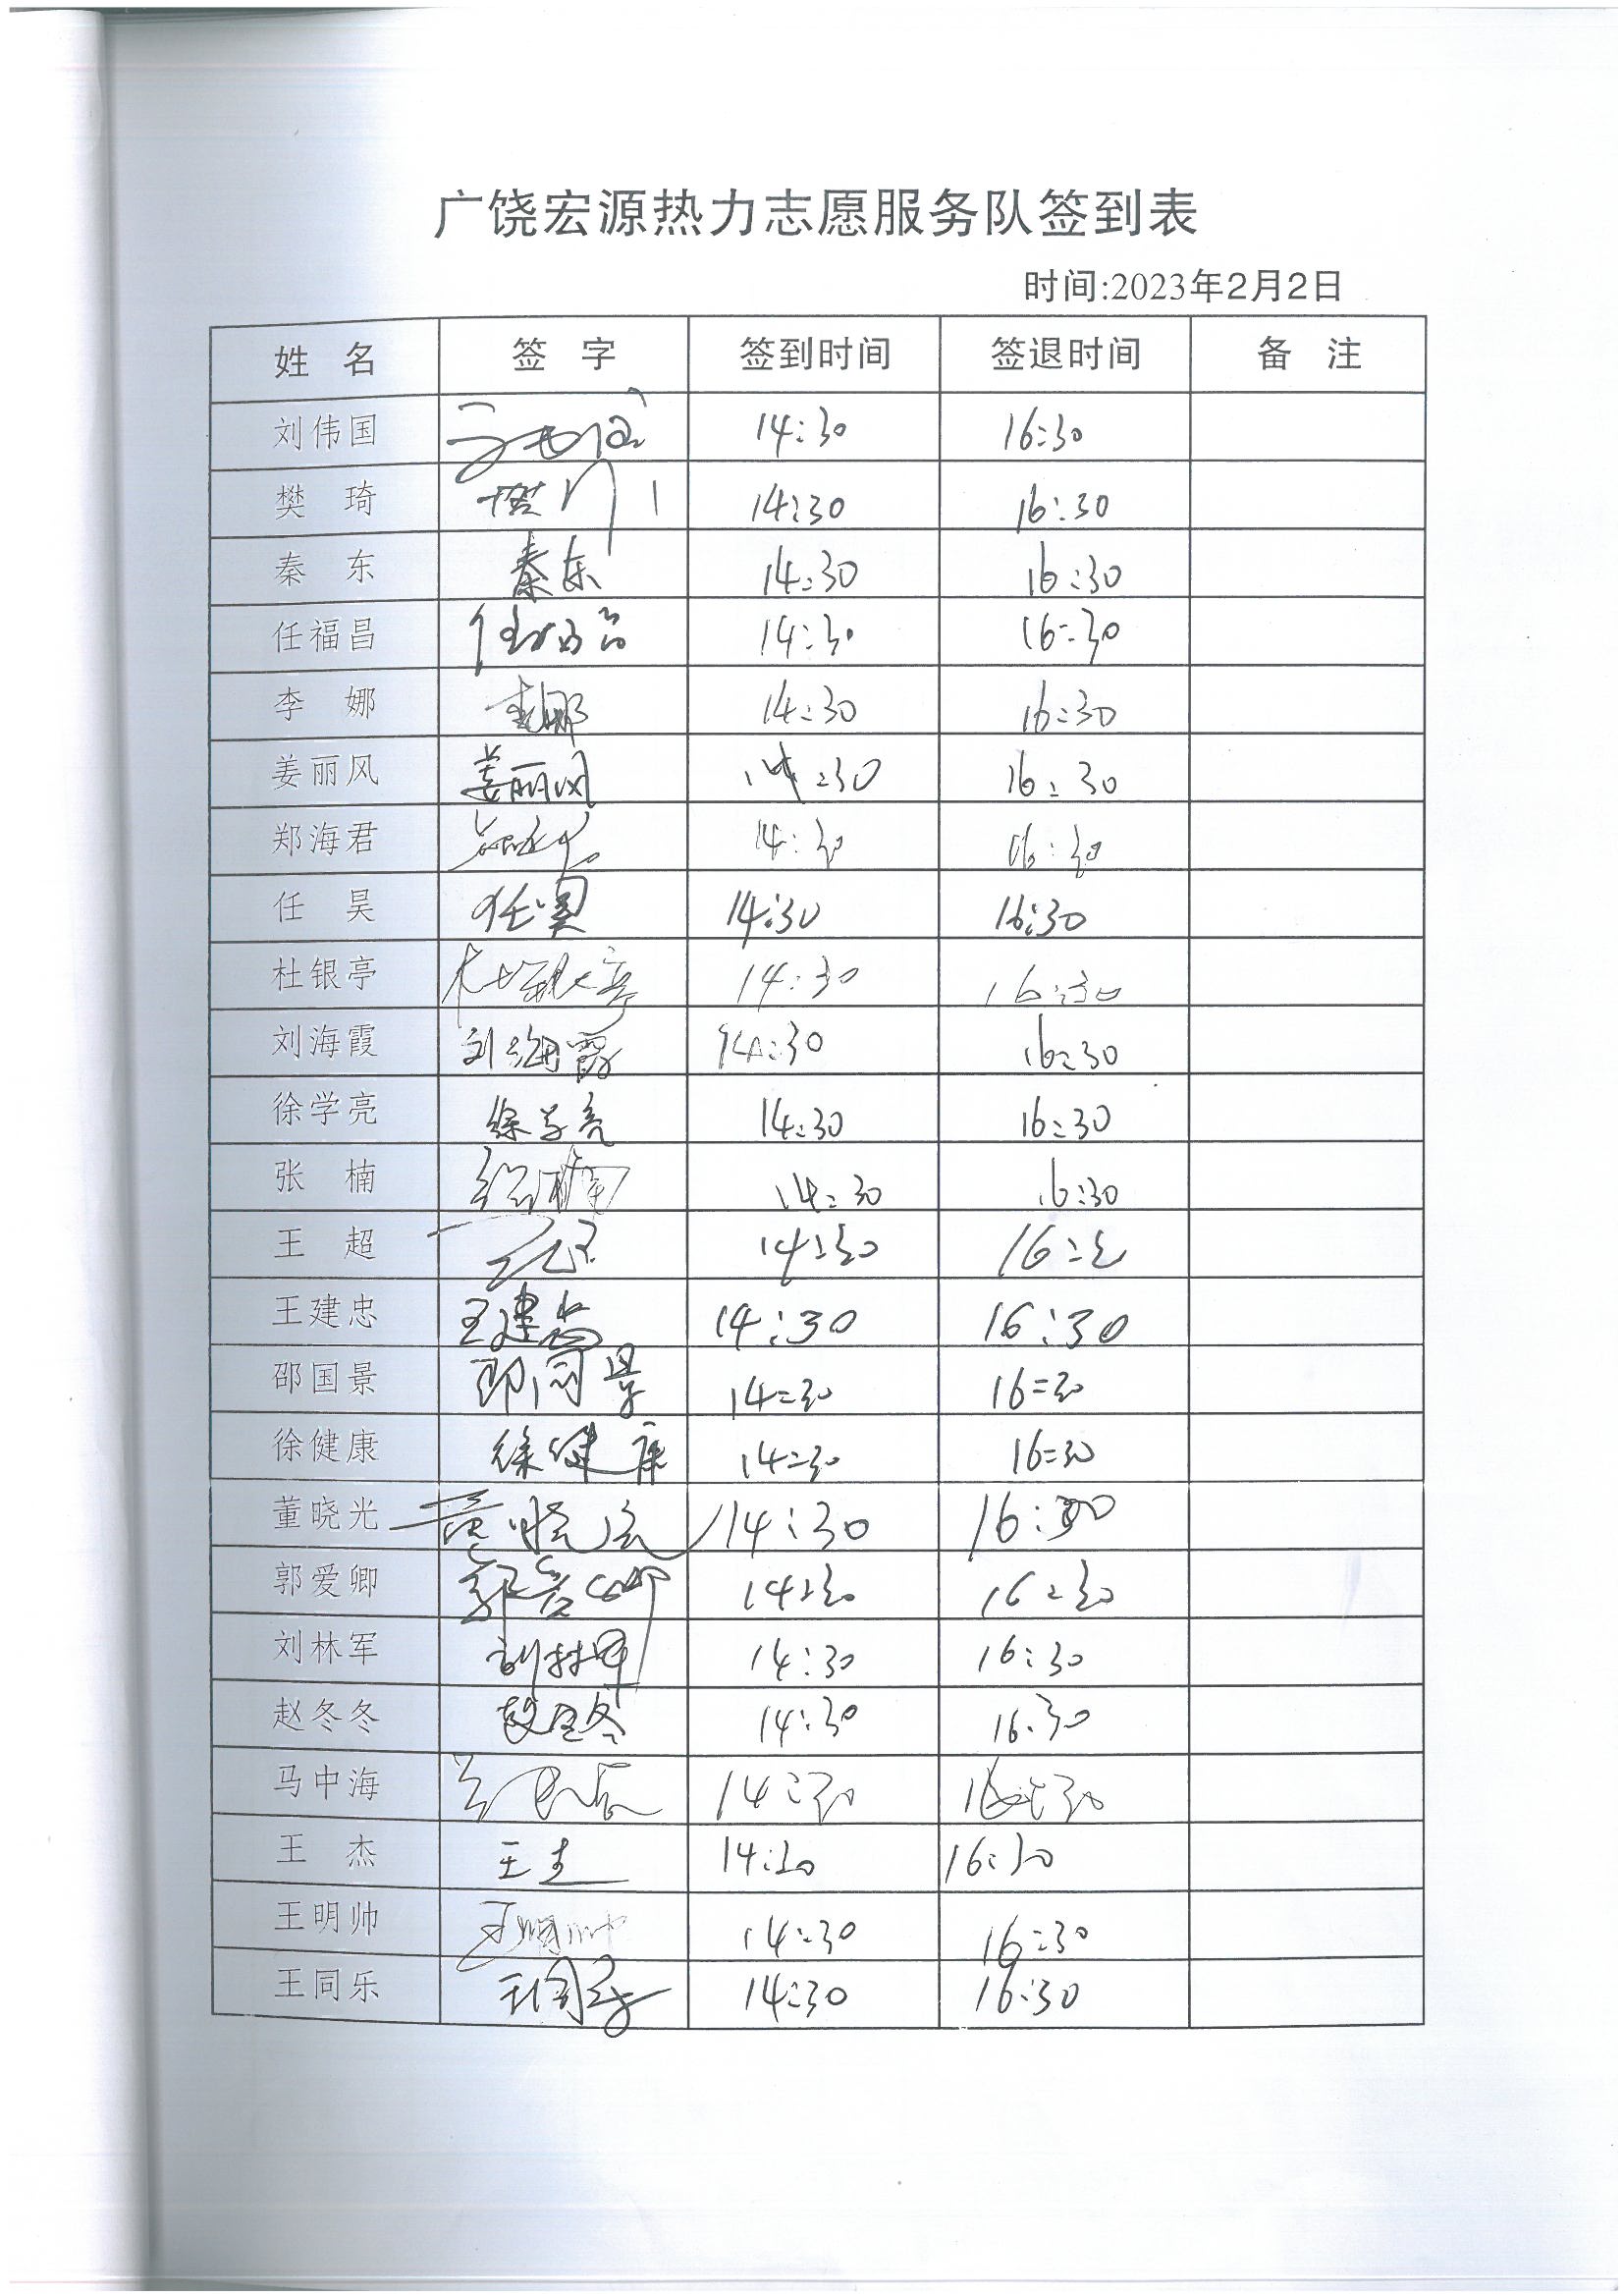 广饶宏源热力志愿服务队签到表
时间:2023年2月2日
姓 名 签 字 签到时间 签退时间 备 注
刘伟国 14:30 16:30
樊 琦 14:30 16:30
秦 东 秦东 14:30 16:30
任福昌 任福昌 14:30 16:30
李 娜 李娜 14:30 16:30
姜丽风 姜丽风 14:30 16:30
郑海君 14:30 16:30
任 昊 任昊 14:30 16:30
杜银亭 杜银亭 14:30 16:30
刘海霞 刘海霞 14:30 16:30
徐学亮 徐学亮 14:30 16:30
张 楠 张楠 14:30 16:30
王 超 14:30 16:30
王建忠 王建忠 14:30 16:30
邵国景 邵国景 14:30 16:30
徐健康 徐健康 14:30 16:30
董晓光 董晓光 14:30 16:30
郭爱卿 郭爱卿 14:30 16:30
刘林军 刘林军 14:30 16:30
赵冬冬 赵冬冬 14:30 16:30
马中海 14:30 16:30
王 杰 王杰 14:30 16:30
王明帅 王明帅 14:30 16:30
王同乐 王同乐 14:30 16:30